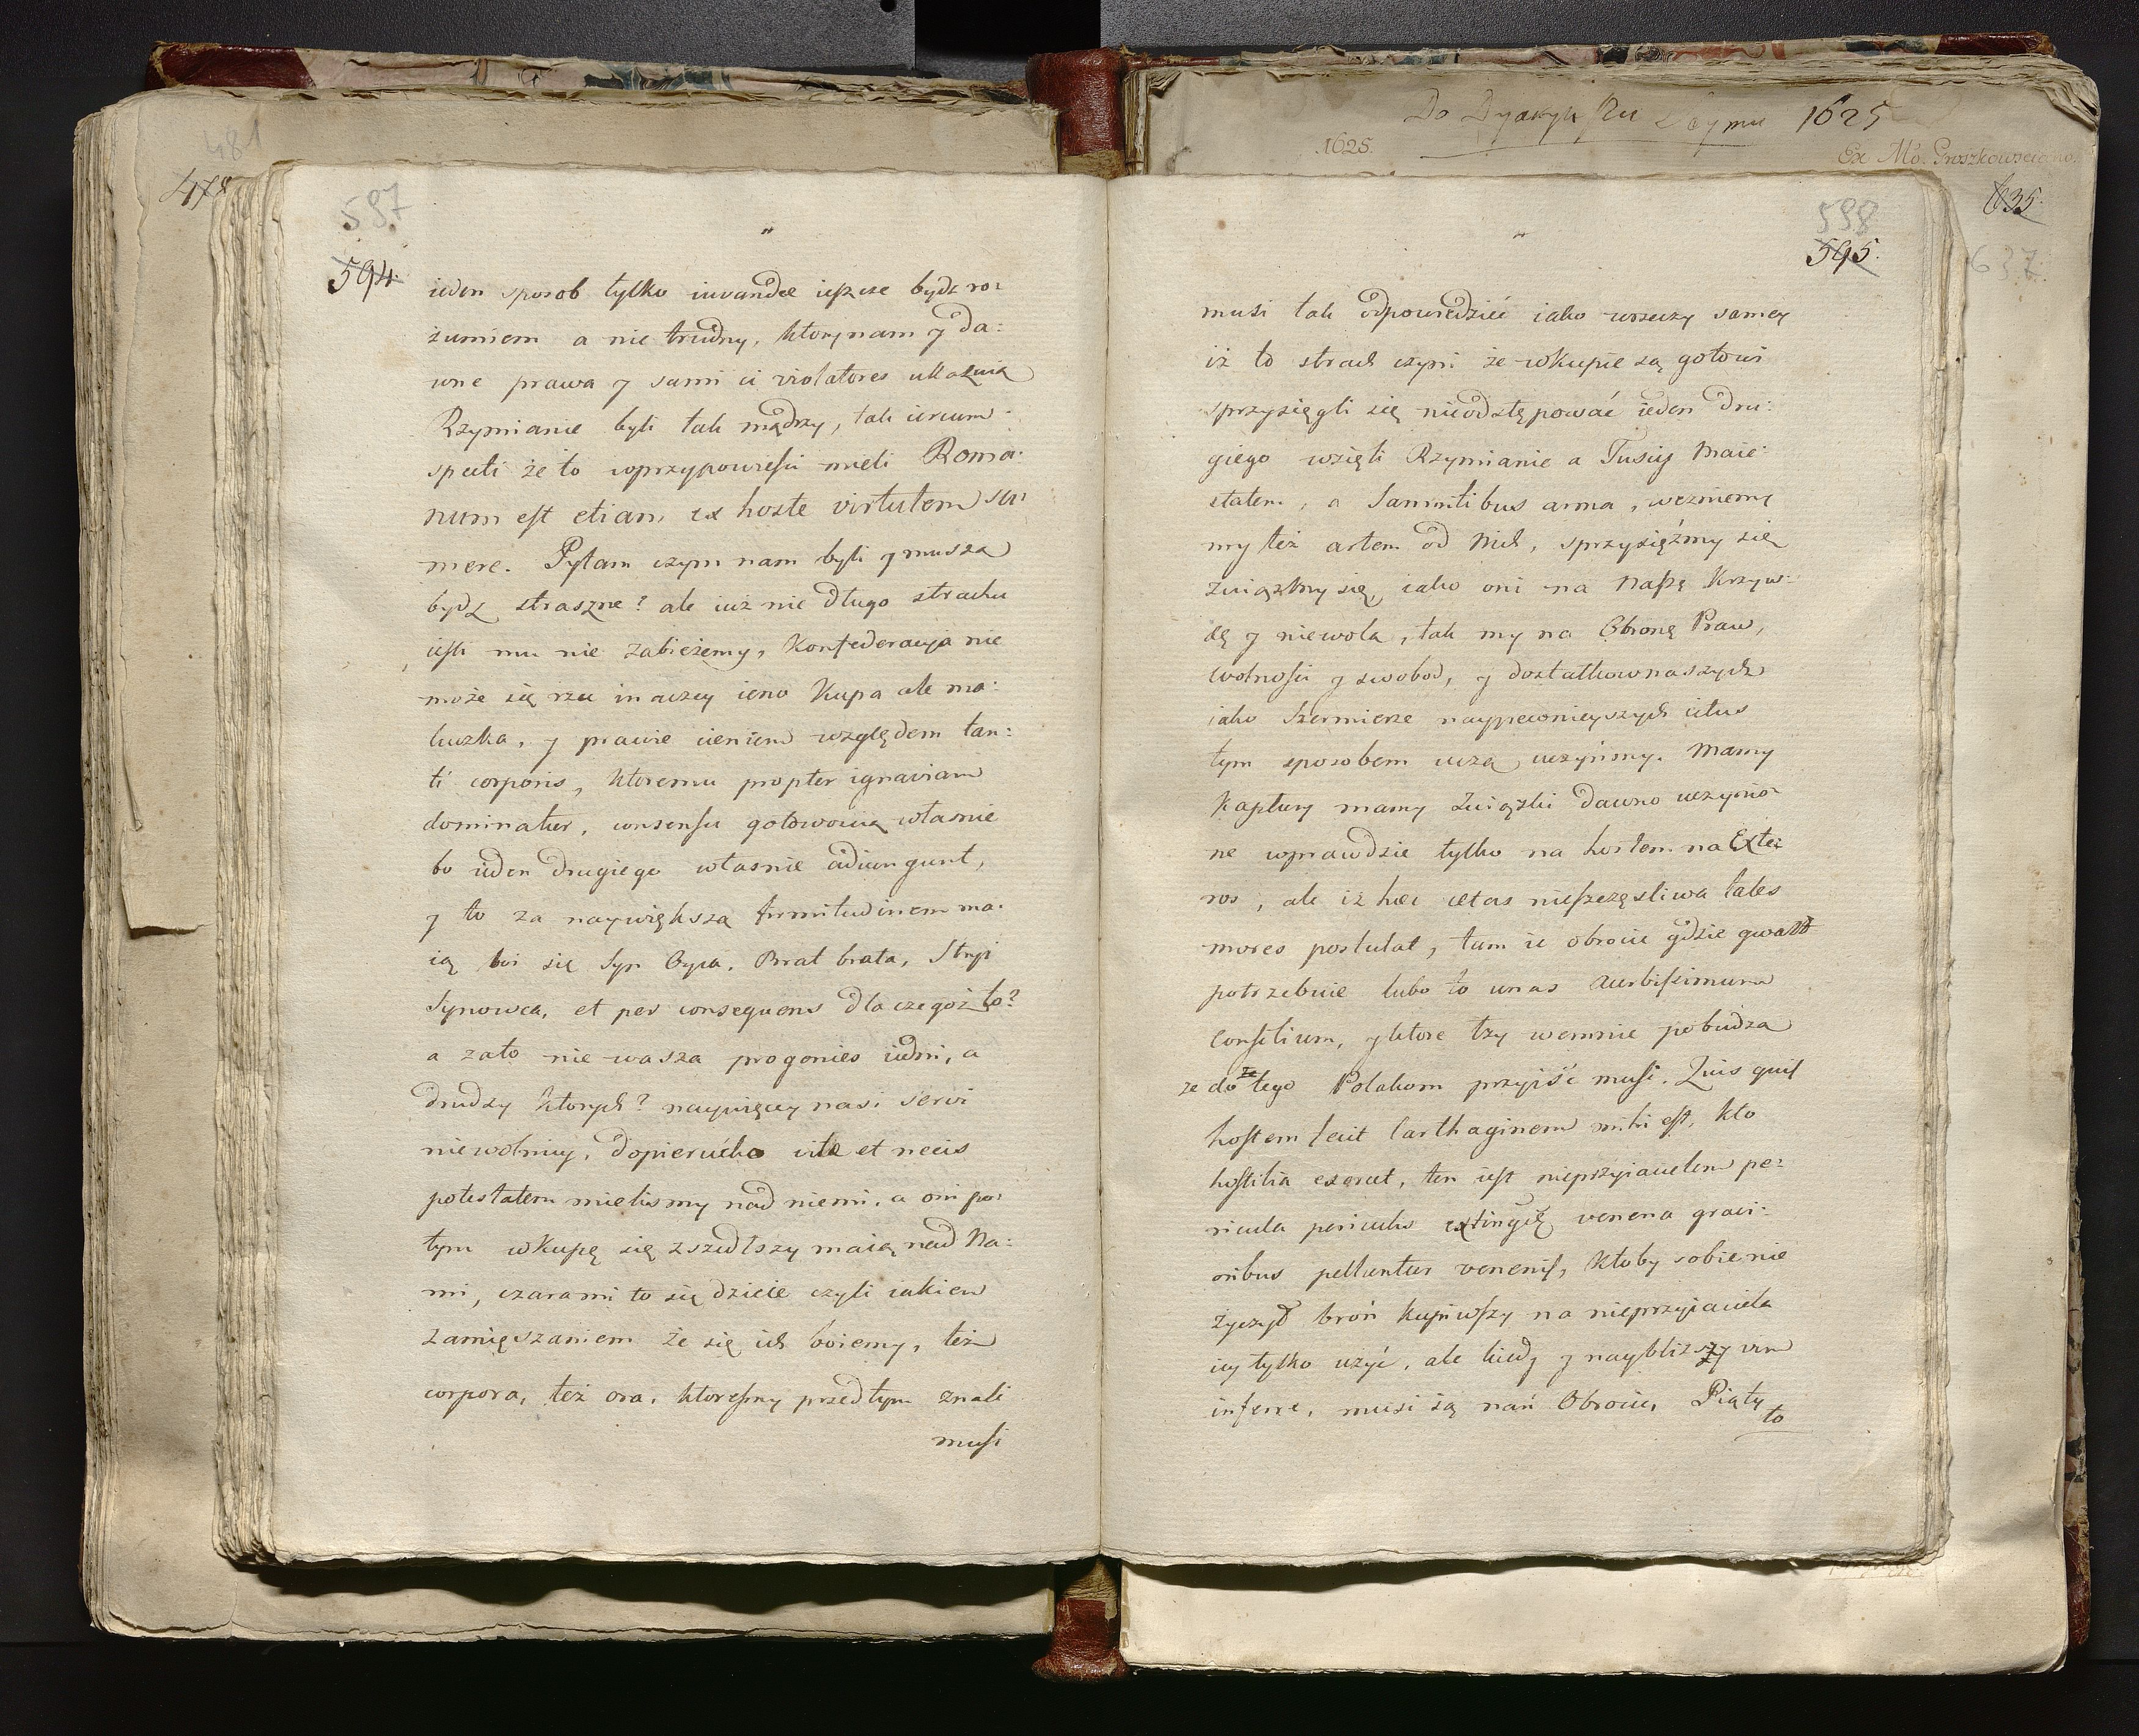 481
478
597
594
ieden sposob tylko iuvandæ ieszcze bydz ro:
zumiem a nie trudny, ktory nam y da:
wne prawa y sami ci violatores ukazuią
Rzymianie byli tak mądrzy, tak circum:
specti że to w przypowieści mieli Roma:
num est etiam ex hoste virtutem su:
mere. Pytam czym nam byli y musza
bydz straszne? ale iuż nie długo strachu
iesli mu nie zabieżemy, Konfederacya nie
może się rzec inaczey ieno Kupa ale ma:
luczka, y prawie cieniem względem tan:
ti corporis, ktoremu propter ignaviam
dominatur, consensu gotowową własnie
bo ieden drugiego własnie adiungunt,
y to za naywiększa firmitudinem ma:
ią boi się Syn Oyca, Brat brata, Stryi
Synowca, et per consequens dla czegoż to?
a zato nie wasza progenies iedni, a
drudzy ktorych? naywięcey nasi servi
niewolnicy, dopierućko vitæ et necis
potestatem mielismy nad niemi, a oni po:
tym w Kupę się zszedłszy maią nad Na:
mi, czarami to się dzieie czyli iakiem
zamięszaniem że się ich boiemy, też
corpora, też ora, ktoresmy przedtym znali
musi
Do Dyaryuszu Seymu 1625
1625.
Ex Mo. Proszkowsciano.
635.
637.
598
595.
musi tak odpowiedzieć iako w rzeczy samey
iż to strach czyni że w kupie są gotowi
sprzysięgli się nieodstępować ieden dru:
giego wzięli Rzymianie a Tuscis Maie:
statem, a Samnitibus arma, wezmiemy
my też artem od Nich, sprzysiężmy się
zwiąźkmy się, iako oni na Naszę Krzyw:
dę y niewola, tak my na Obronę Praw,
wolności y swobod, y dostatkow naszych
iako Szermierze naypewnieyszych ictus
tym sposobem uczą uczyńmy. Mamy
Kaptury mamy Związki dawno uczynio:
ne wprawdzie tylko na hostem na Exte:
ros, ale iż hæc ætas nieszczęsliwa tales
mores postulat, tum ie obrocić gdzie gwałt
potrzebuie lubo to u nas acerbissimum
consilium, y ktore łzy wemnie pobudza
ze do tego Polakom przyiść musi. Quis quis
hostem fecit Carthaginem mihi est, kto
hostilia exercet, ten iest nieprzyiacielem pe:
ricula periculis extingię venena gravi:
oribus pelluntur venenis, ktoby sobie nie
życzył broń kupiwszy na nieprzyiaciela
iey tylko użyć, ale kiedy y naybliższy vim
inferre, musi ią nań Obrocić, Piąty
to